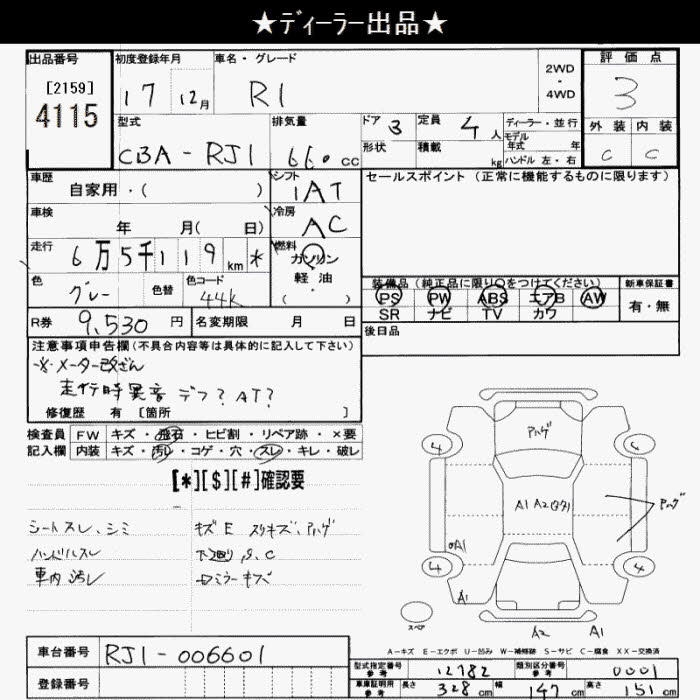 ★ディーラー出品★
出品番号
[2159]
4115
初度登録年月
17 12月
車名・グレード
R1
2WD
・
4WD
評価点
3
型式
CBA-RJ1
排気量
660 cc
ドア 3
定員 4 人
ディーラー・並行
モデル
年式 年
形状
積載 kg
ハンドル 左・右
外装 内装
C C
車歴
自家用・( )
シフト
IAT
セールスポイント (正常に機能するものに限ります)
車検
年 月( 日)
冷房
AC
走行
6万5千119 km *
燃料
ガソリン
軽・油
( ・ )
色
グレー
色替
色コード
44K
装備品 (純正品に限り○をつけてください)
新車保証書
PS PW ABS エアB AW
SR ナビ TV カワ
有・無
R券 9,530 円
名変期限 月 日
後日品
注意事項申告欄(不具合内容等は具体的に記入して下さい)
※メーター改ざん
走行時異音 デフ? AT?
修復歴 有 [箇所 ]
検査員
記入欄
FW キズ・飛石・ヒビ割・リペア跡・×要
内装 キズ・汚レ・コゲ・穴・スレ・キレ・破レ
[*][$][#]確認要
シートスレ、シミ
ハンドルスレ
車内汚レ
キズE スリキズ、ハゲ
下廻りS、C
ミラーキズ
ハゲ
4 4
A1 A2
ハゲ
A1
4 4
A1
スペア
A2 A1
A-キズ E-エクボ U-凹み W-補修跡 S-サビ C-腐食 XX-交換済
車台番号 RJ1-006601
登録番号
型式指定番号
参考
12782
類別区分番号
参考
0001
車庫証明用
参考
長さ 328 cm 幅 147 cm 高さ 151 cm